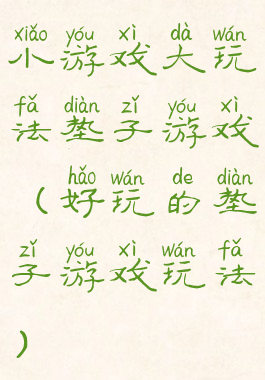 xiǎo yóu xì dà wán
小游戏大玩
fǎ diàn zǐ yóu xì
法垫子游戏
hǎo wán de diàn
(好玩的垫
zǐ yóu xì wán fǎ
子游戏玩法
)